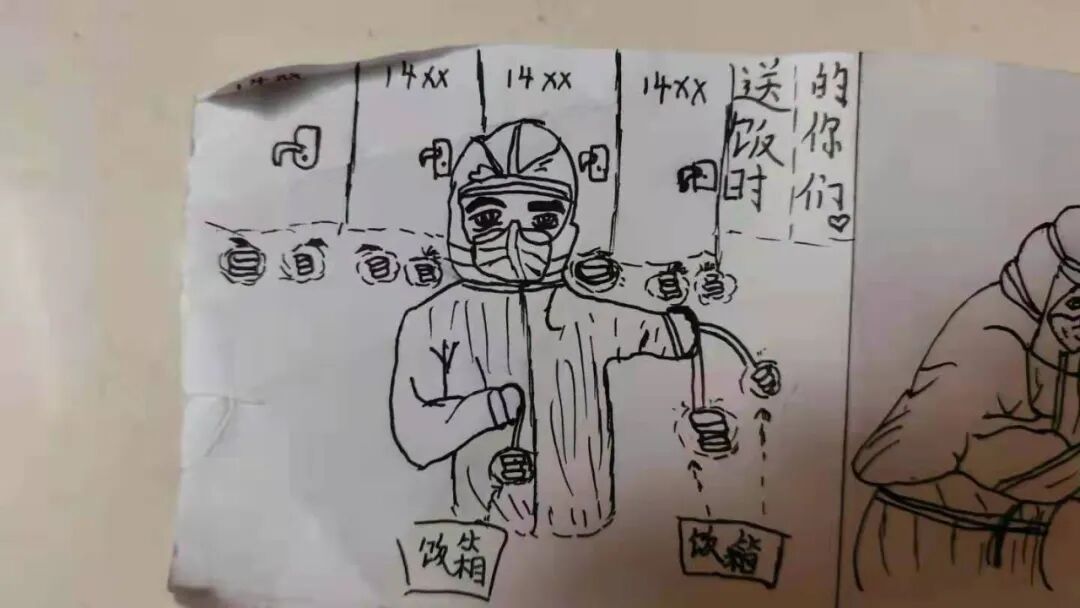 14xx
14xx
14xx
14xx
送饭时
的你们♡
饭箱
饭箱